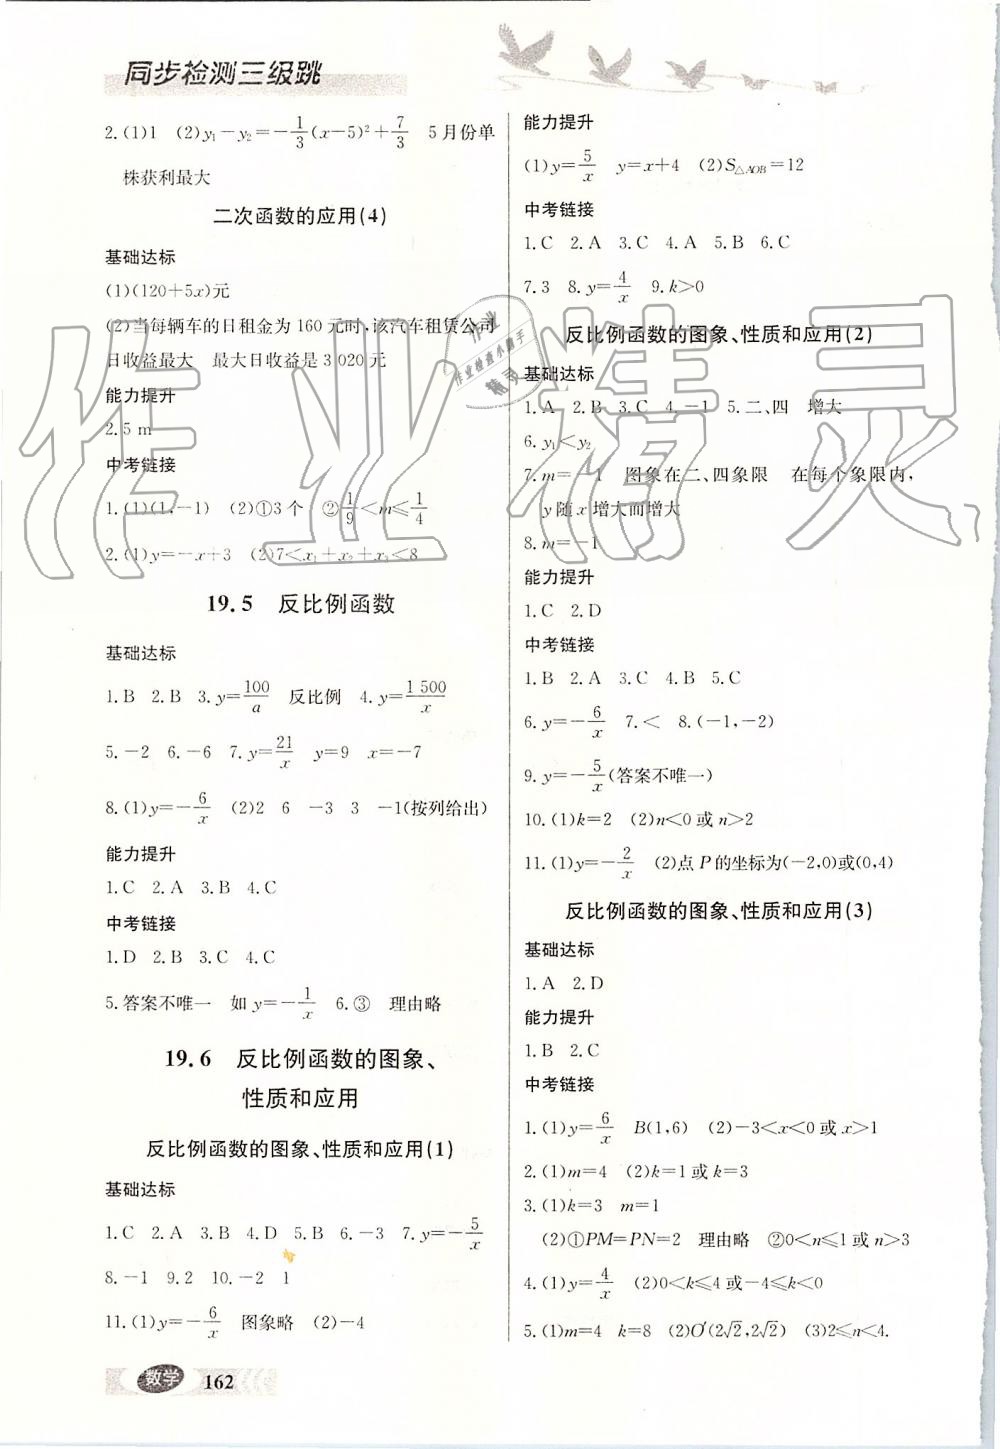 同步检测三级跳
2.(1)1 (2)y₁-y₂=-1/3(x-5)²+7/3 5月份单
株获利最大
二次函数的应用(4)
基础达标
(1)(120+5x)元
(2)当每辆车的日租金为160元时,该汽车租赁公司
日收益最大 最大日收益是3 020元
能力提升
2.5 m
中考链接
1.(1)(1,-1) (2)①3个 ②1/9<m≤1/4
2.(1)y=-x+3 (2)7<x₁+x₂+x₃<8
19.5 反比例函数
基础达标
1.B 2.B 3.y=100/a 反比例 4.y=1 500/x
5.-2 6.-6 7.y=21/x y=9 x=-7
8.(1)y=-6/x (2)2 6 -3 3 -1(按列给出)
能力提升
1.C 2.A 3.B 4.C
中考链接
1.D 2.B 3.C 4.C
5.答案不唯一 如y=-1/x 6.③ 理由略
19.6 反比例函数的图象、
性质和应用
反比例函数的图象、性质和应用(1)
基础达标
1.C 2.A 3.B 4.D 5.B 6.-3 7.y=-5/x
8.-1 9.2 10.-2 1
11.(1)y=-6/x 图象略 (2)-4
数学 162
能力提升
(1)y=5/x y=x+4 (2)S△AOB=12
中考链接
1.C 2.A 3.C 4.A 5.B 6.C
7.3 8.y=4/x 9.k>0
反比例函数的图象、性质和应用(2)
基础达标
1.A 2.B 3.C 4.-1 5.二、四 增大
6.y₁<y₂
7.m=-1 图象在二、四象限 在每个象限内,
y随x增大而增大
8.m=-1
能力提升
1.C 2.D
中考链接
1.B 2.A 3.C 4.B 5.C
6.y=-6/x 7.< 8.(-1,-2)
9.y=-5/x(答案不唯一)
10.(1)k=2 (2)n<0或n>2
11.(1)y=-2/x (2)点P的坐标为(-2,0)或(0,4)
反比例函数的图象、性质和应用(3)
基础达标
1.A 2.D
能力提升
1.B 2.C
中考链接
1.(1)y=6/x B(1,6) (2)-3<x<0或x>1
2.(1)m=4 (2)k=1或k=9
3.(1)k=3 m=1
(2)①PM=PN=2 理由略 ②0<n≤1或n>3
4.(1)y=4/x (2)0<k≤4或-4≤k<0
5.(1)m=4 k=8 (2)O′(2√2,2√2) (3)2≤n<4.
作业精灵
作业
作业检查小助手
精灵